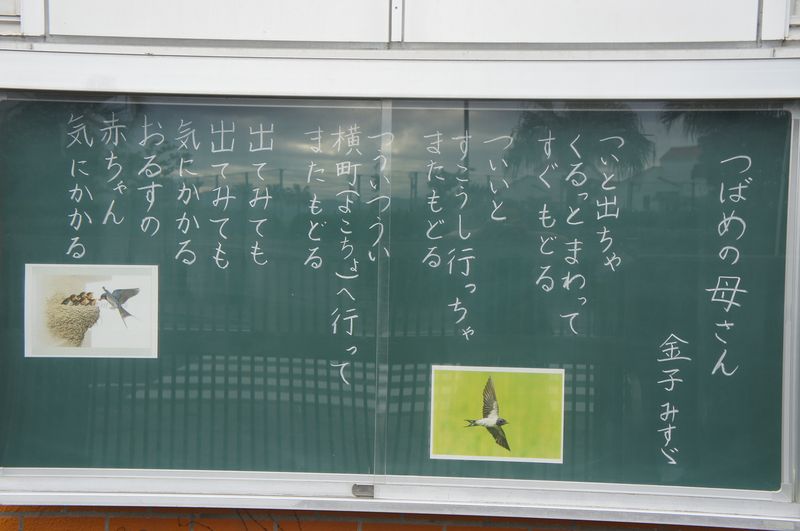 つばめの母さん
金子みすゞ
ついと出ちゃ
くるっとまわって
すぐもどる
ついいと
すこうし行っちゃ
またもどる
つういつうい
横町(よこちょ)へ行って
またもどる
出てみても
出てみても
気にかかる
おるすの
赤ちゃん
気にかかる